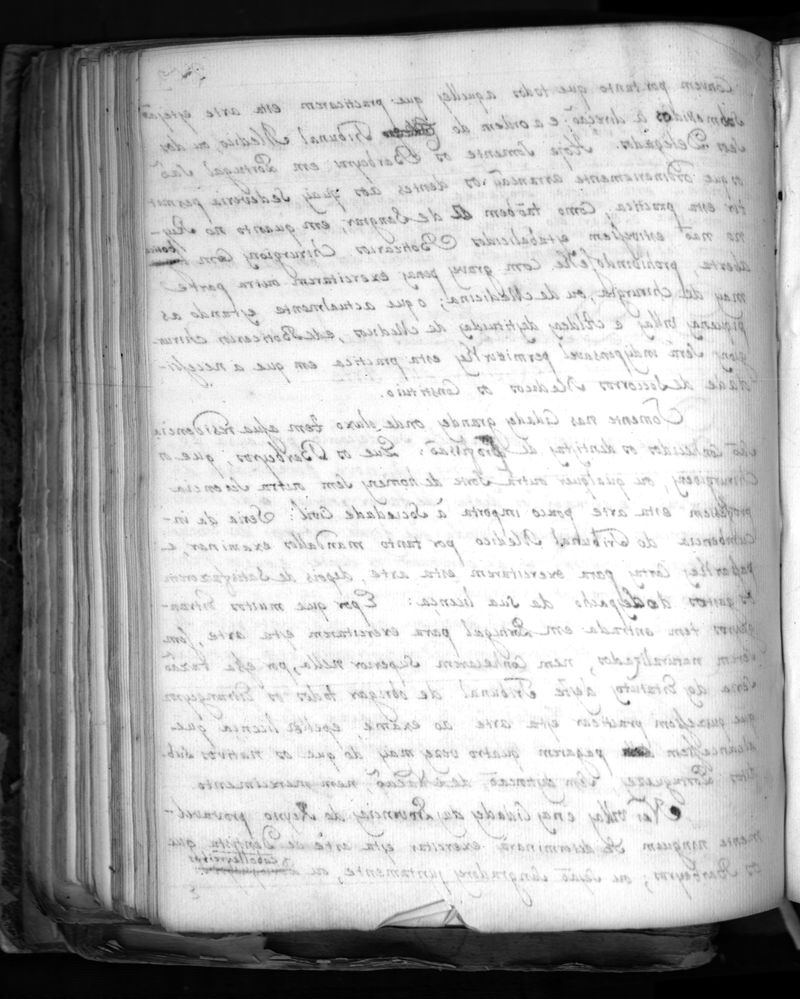 Convem por tanto que todos aquelles que practicarem esta arte estejaõ
sobmetidos à direcaõ, e a ordem do Tribunal Medico, ou dos
seos Delegados. Hoje somente os Barbeyros em Portugal saõ
os que ordinariamente arrancaõ os dentes aos quaes se deveria permit
tir esta practica, como taõbem a de Sangrar, em quanto no Rey-
no naõ estivessem estabelecidos Boticarios Chirurgioens, com
aberta, prohibindoselhe com graves penas exercitarem outra parte
mays de Chirurgia, ou de Medicina; o que actualmente estando as
piquenas Villas e Aldeas destituidas de Medicos, e de Boticarios Chirur-
gioens sera indispensavel permitirlhes esta practica em que a necessi-
dade de Socorros Medicos os Constituio.
Somente nas Cidades grandes onde o luxo tem a sua residencia
saõ conhecidos os dentistas de profissaõ: Que os Barbeyros, que os
Chirurgioens, ou qualquer outra sorte de homens sem outra sciencia
professem esta arte pouco importa à Sociedade Civil: Seria da in-
cumbencia do Tribunal Medico por tanto mandallos examinar, e
passarlhes Carta para exercitarem esta arte, depois de satisfazerem
os gastos do despacho da sua licenca: E por que muitos Estran-
geyros tem entrada em Portugal para exercitarem esta arte, sem
serem naturalizados, nem conhecerem superior nella, por essa razaõ
seria dos Estatutos deste Tribunal de obrigar todos os Estrangeyros
que quizessem practicar esta arte ao exame, e pedir licenca que
alcancassem pagarem quatro vezes mays do que os nativos sub-
ditos Portuguezes sem distincaõ de Nacaõ, nem merecimento.
Nas Villas, e nas Cidades das Provincias do Reyno provavel-
mente ninguem se determinarà exercitar esta arte de Dentista que
os Barbeyros; ou sejaõ Sangradores juntamente, ou Cabelleyreiros